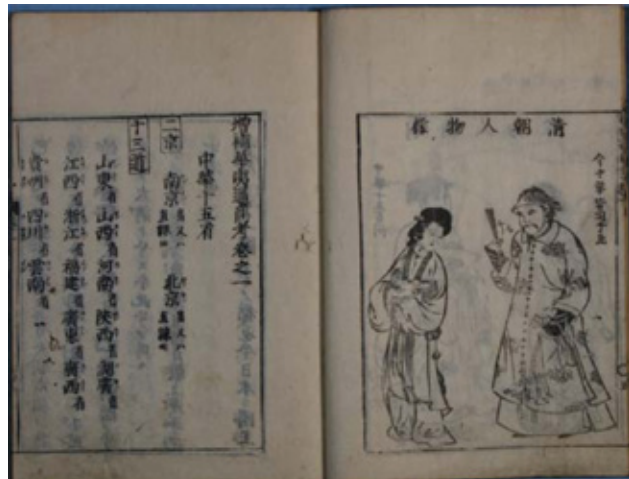 清朝人物
增補華夷通商考卷之一
中華十五省
二京 南京省又八直隸 北京省又八直隸
十三道
山東省 山西省 河南省 陝西省 湖廣省
江西省 浙江省 福建省 廣東省 廣西省
貴州省 四川省 雲南省